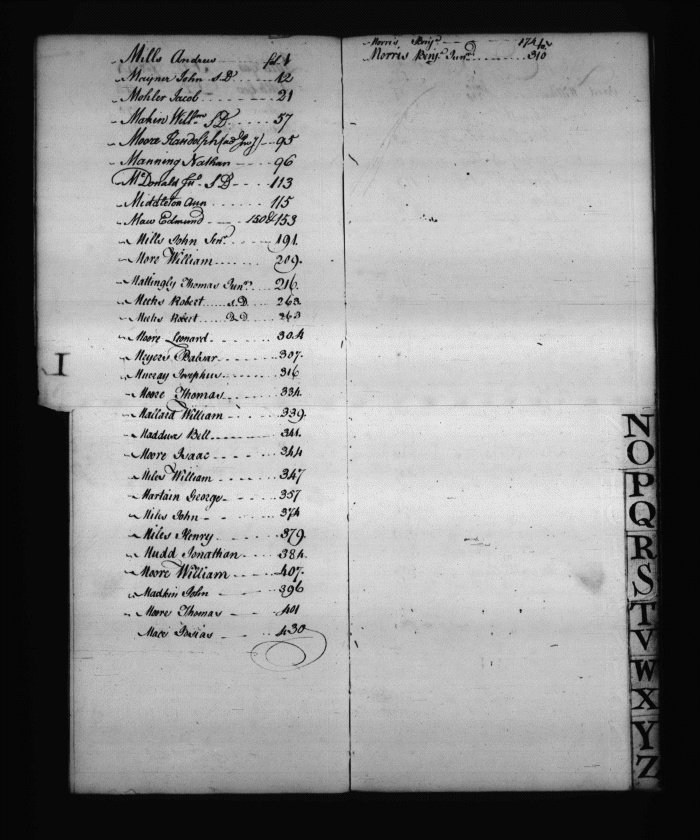 Mills Andrew fol. 1
Mayner John S.D. 12
Mohler Jacob 21
Makin Willm S.D. 57
Moore Randolph 95
Manning Nathan 96
McDonald Jno. S.D. 113
Middleton Ann 115
Maw Edmund 150 & 153
Mills John Senr. 191
More William 209.
Mattingly Thomas Junr. 216
Meeks Robert S.D. 263
Meeks Robert D.D. 263
Moore Leonard 304
Meyers Baltsar 307.
Murray Josephus 316
Moore Thomas 334
Mallard William 339.
Maddux Bell 341.
Moore Isaac 344
Miles William 347
Martain George 357
Miles John 374
Miles Henry 379.
Mudd Jonathan 384.
Moore William 407.
Madkin John 396
Moore Thomas 401
Mace Josias 430
Morris Benjn.
Morris Benjn. Junr. 310
I
N
O
P
Q
R
S
T
V
W
X
Y
Z